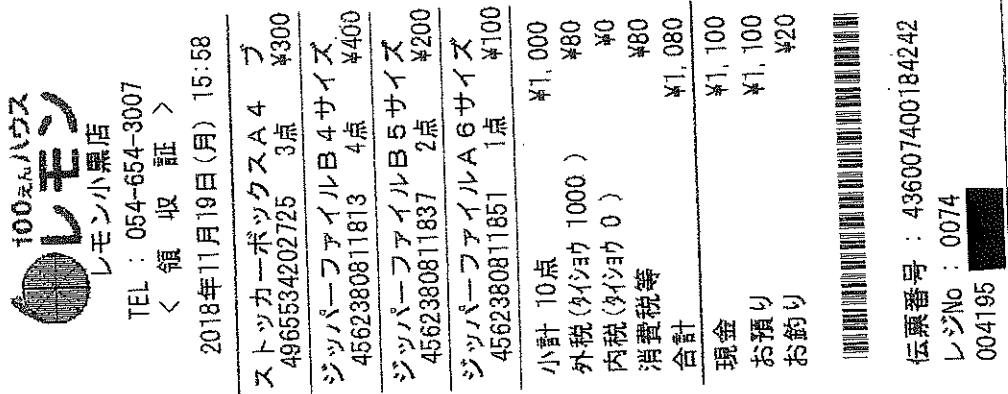 100えんハウス
レモン
レモン小黒店
TEL : 054-654-3007
< 領 収 証 >
2018年11月19日(月) 15:58
ストッカーボックスA4 ブ
4965534202725 3点 ¥300
ジッパーファイルB4サイズ
4562380811813 4点 ¥400
ジッパーファイルB5サイズ
4562380811837 2点 ¥200
ジッパーファイルA6サイズ
4562380811851 1点 ¥100
小計 10点 ¥1,000
外税(タイショウ 1000 ) ¥80
内税(タイショウ 0 ) ¥0
消費税等 ¥80
合計 ¥1,080
現金 ¥1,100
お預り ¥1,100
お釣り ¥20
伝票番号 : 436007400184242
レジNo : 0074
004195